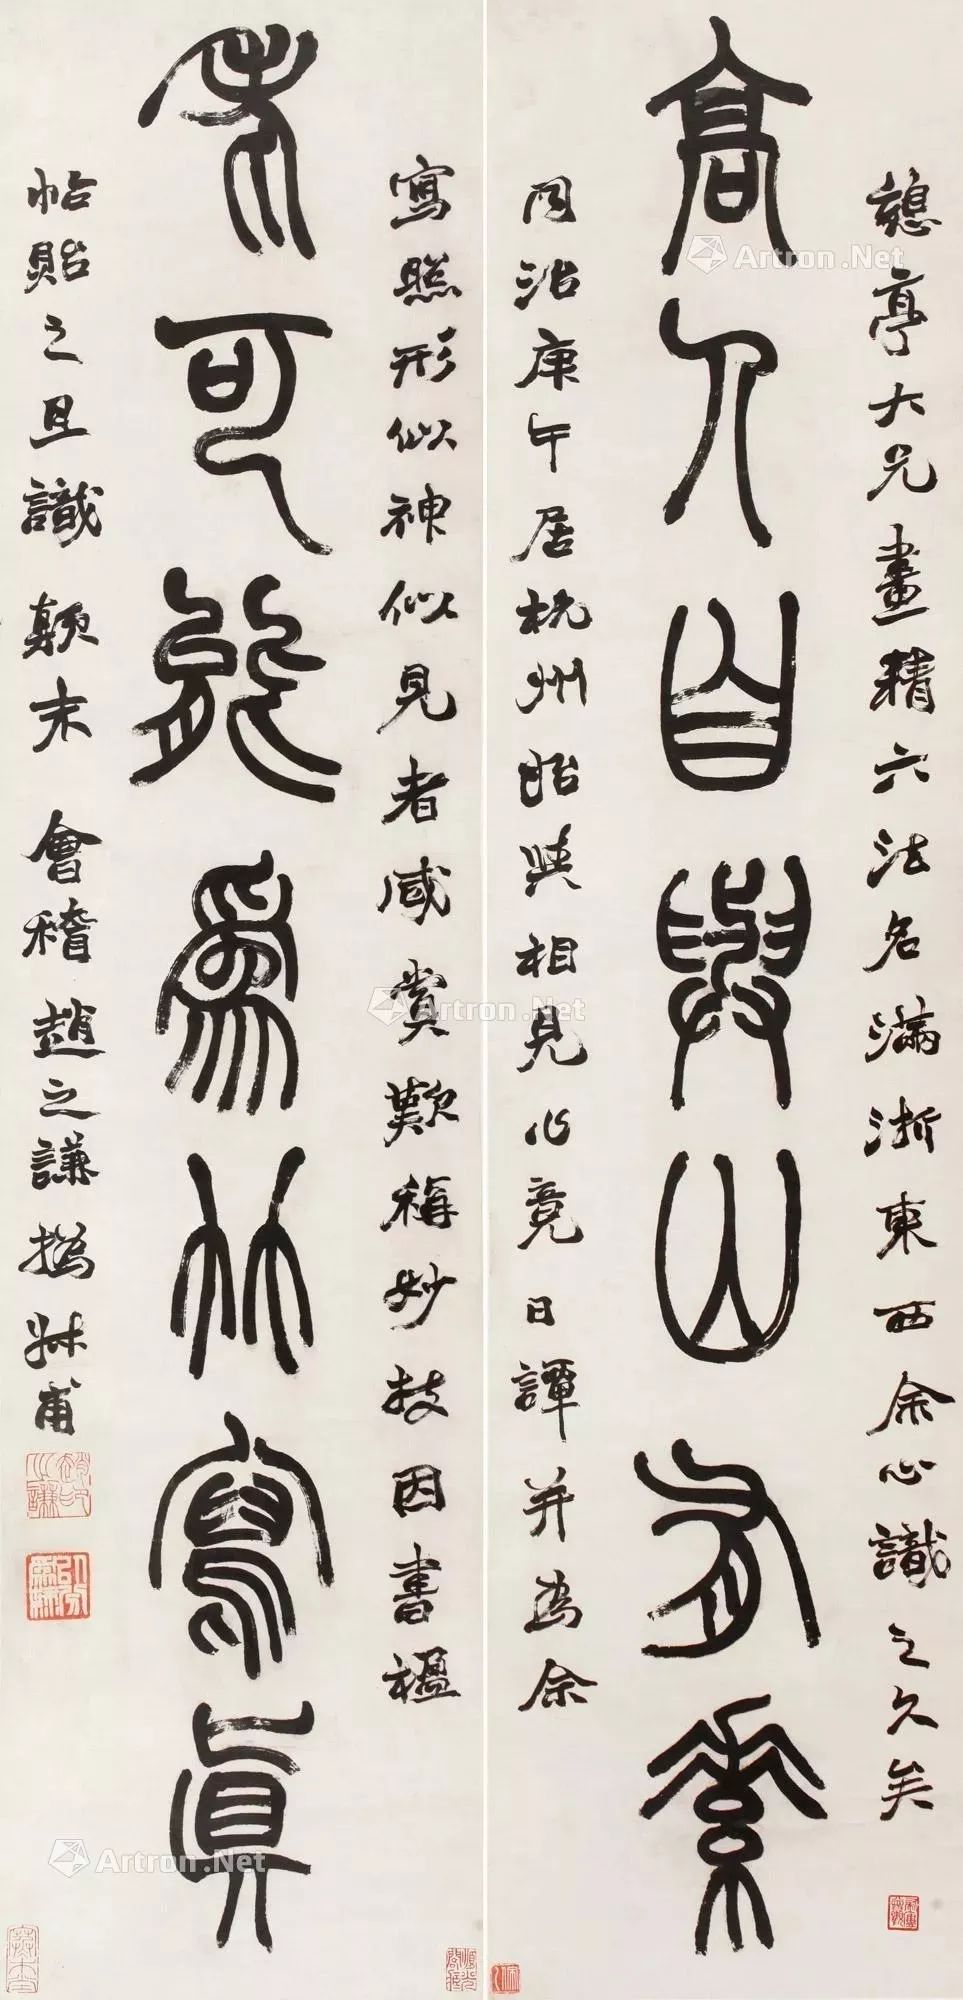 亭大兄畫精六法名滿浙東西余心識之久矣
高人自與山有素
同治庚午居杭州始與相見必竟日譚并為余
寫照形似神似見者咸賞歎稱妙技因書楹
老可能為竹寫真
帖貽之且識顛末 會稽趙之謙撝叔甫
Artron.Net
Artron.Net
Artron.Net